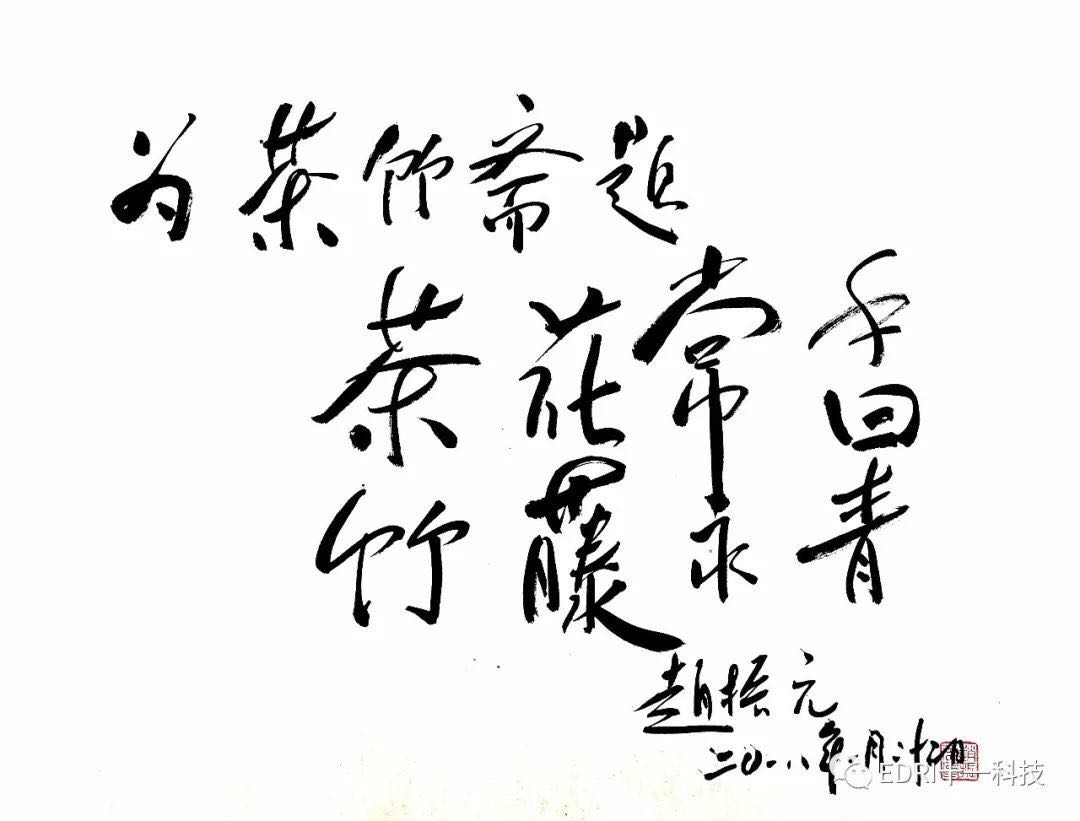 为茶竹斋题
茶花常回
竹藤永青
趙振元
二〇一八年月日
EDRI十一科技